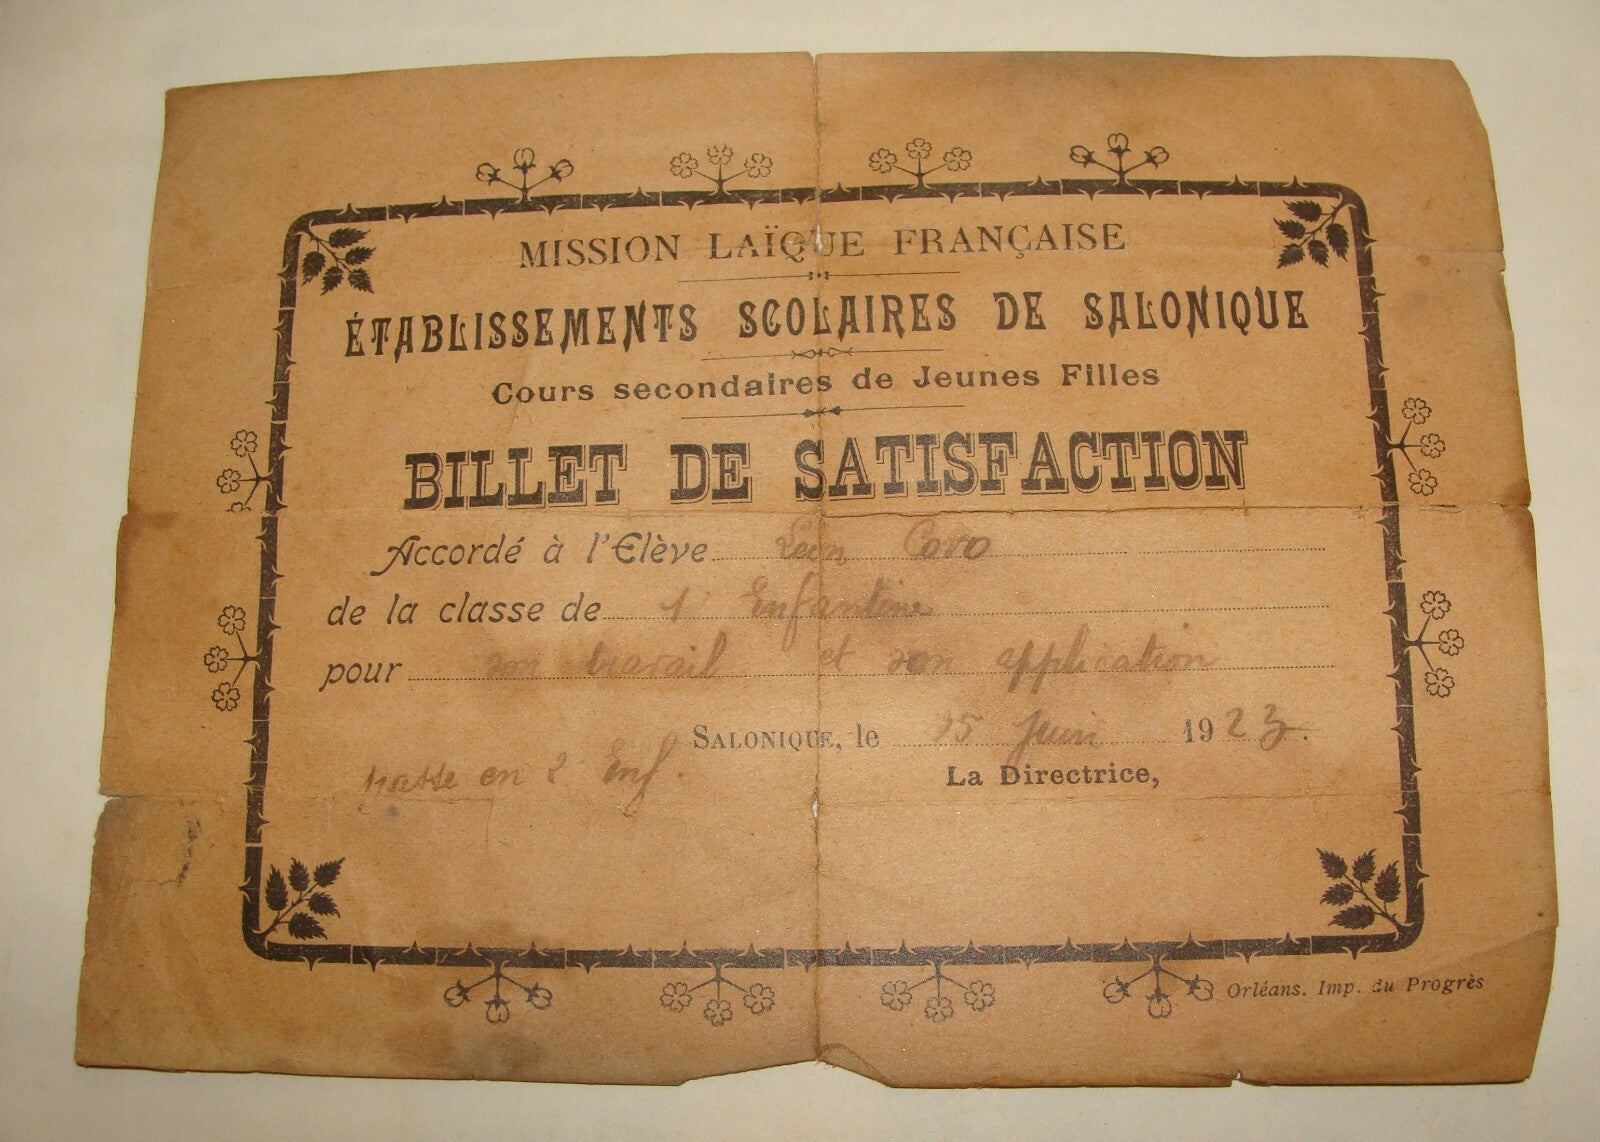 MISSION LAÏQUE FRANÇAISE
ÉTABLISSEMENTS SCOLAIRES DE SALONIQUE
Cours secondaires de Jeunes Filles
BILLET DE SATISFACTION
Accordé à l'Elève Léon Covo
de la classe de 1e Enfantine
pour son travail et son application
SALONIQUE, le 15 Juin 1923.
passe en 2e Enf.
La Directrice,
Orléans. Imp. du Progrès